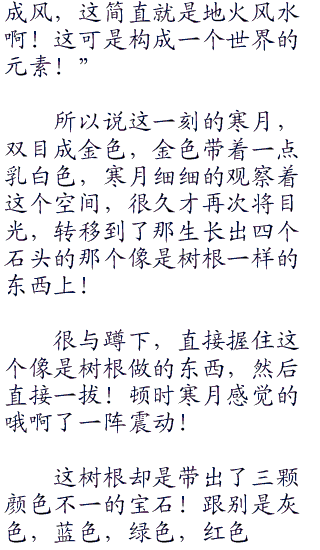 成风，这简直就是地火风水
啊！这可是构成一个世界的
元素！”
所以说这一刻的寒月，
双目成金色，金色带着一点
乳白色，寒月细细的观察着
这个空间，很久才再次将目
光，转移到了那生长出四个
石头的那个像是树根一样的
东西上！
很与蹲下，直接握住这
个像是树根做的东西，然后
直接一拔！顿时寒月感觉的
哦啊了一阵震动！
这树根却是带出了三颗
颜色不一的宝石！跟别是灰
色，蓝色，绿色，红色